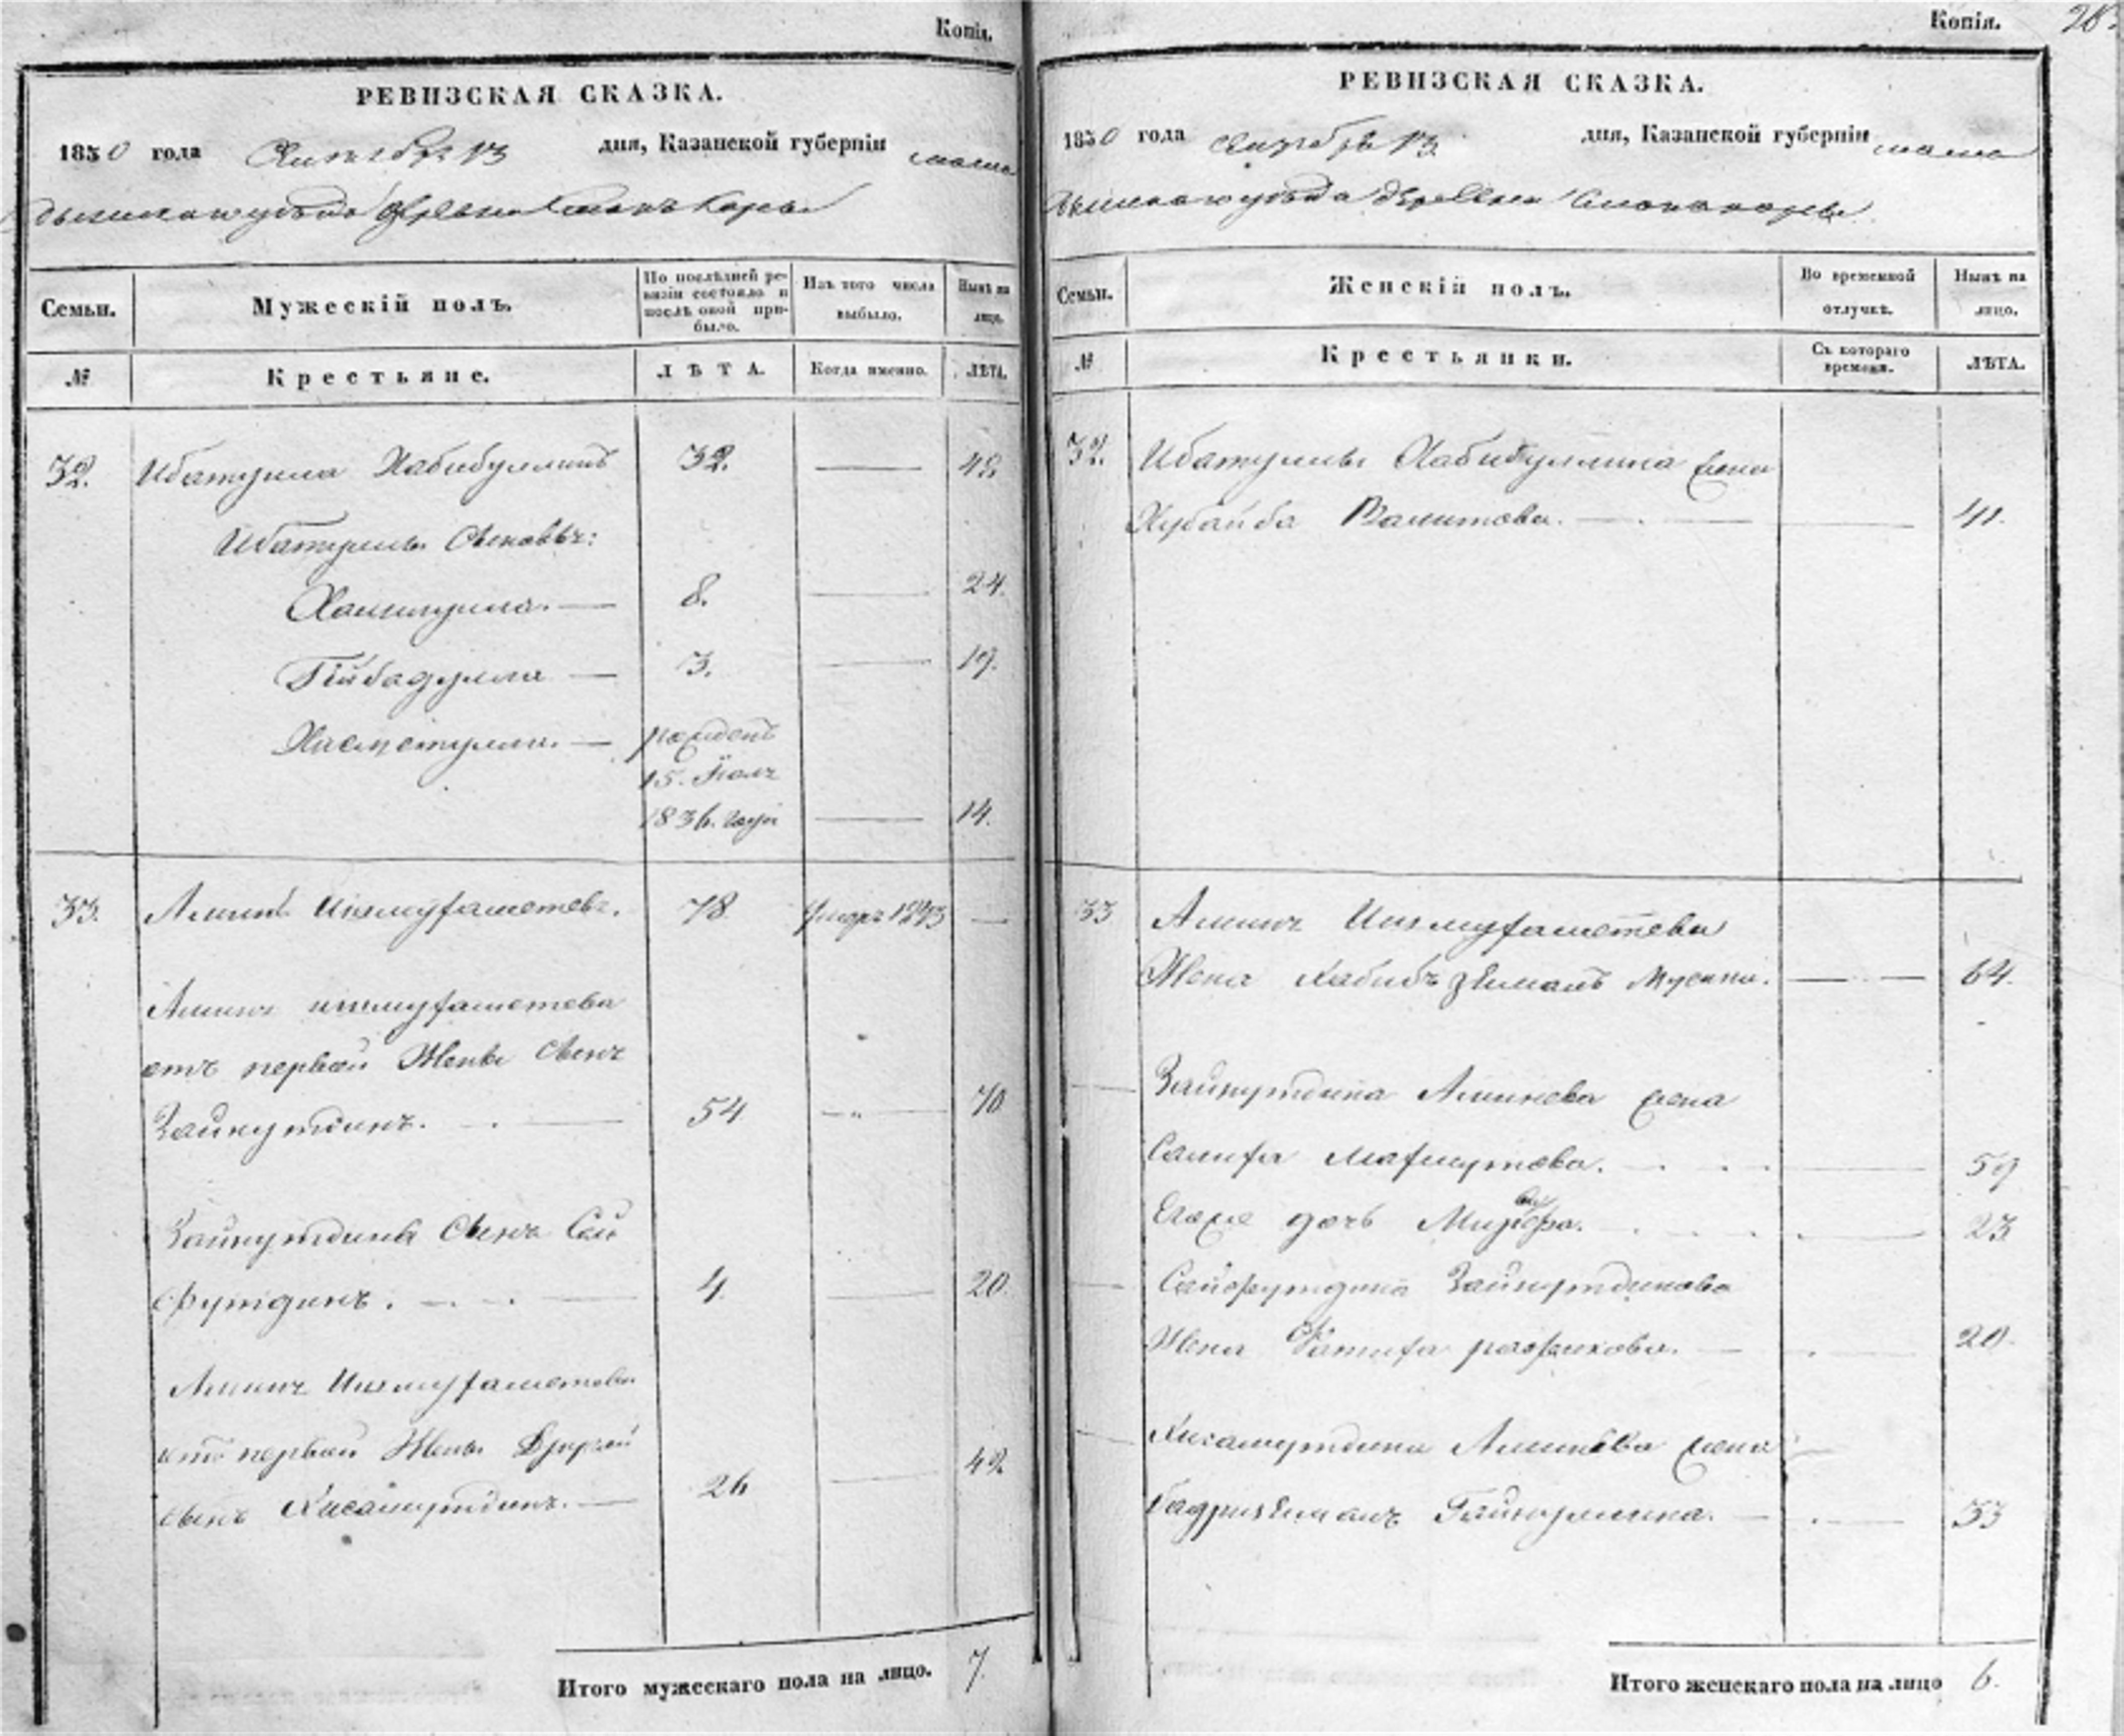 Копія.
РЕВИЗСКАЯ СКАЗКА.
1850 года Октября 13 дня, Казанской губерніи мама
дышскаго уезда деревни
Семьи.
Мужескій полъ.
По послѣдней ре-
визіи состояло и
послѣ оной при-
было.
Изъ того числа
выбыло.
Нынѣ на
лицо.
№
Крестьяне.
ЛѢТА.
Когда именно.
ЛѢТА.
32. Ибатулла Хабибуллинъ 32. 48
Ибатуллы Сыновья:
8. 24.
Гибадулла 3. 19.
Хисметулла. рожденъ
15. Іюля
1836. года 14.
33. Аминъ Ишмухаметевъ. 78 Умеръ 1843
Аминя ишмухаметева
отъ первой Жены Сынъ
Зайнутдинъ. 54 70
Зайнутдина Сынъ Сай
футдинъ. 4. 20.
Аминя Ишмухаметева
отъ первой Жены Другой
сынъ Хисамутдинъ. 26 42
Итого мужескаго пола на лицо. 7.
Копія.
РЕВИЗСКАЯ СКАЗКА.
1850 года Октября 13. дня, Казанской губерніи мама
дышскаго уезда деревни
Семьи.
Женскій полъ.
Во временной
отлучкѣ.
Нынѣ на
лицо.
№
Крестьянки.
Съ котораго
времени.
ЛѢТА.
32. Ибатуллы Хабибуллина жена
Хубайба Валитова. 41.
33 Аминя Ишмухаметева
Жена Хабибъ земалъ Мусина. 64.
Зайнутдина Аминева жена
Салиха Махмутова. 59
Ихже дочь 23
Сайфутдина Зайнутдинова
Жена Фатиха рафикова. 20.
Хисамутдина Аминева жена
Бадризямалъ Гайнуллина. 33
Итого женскаго пола на лицо 6.